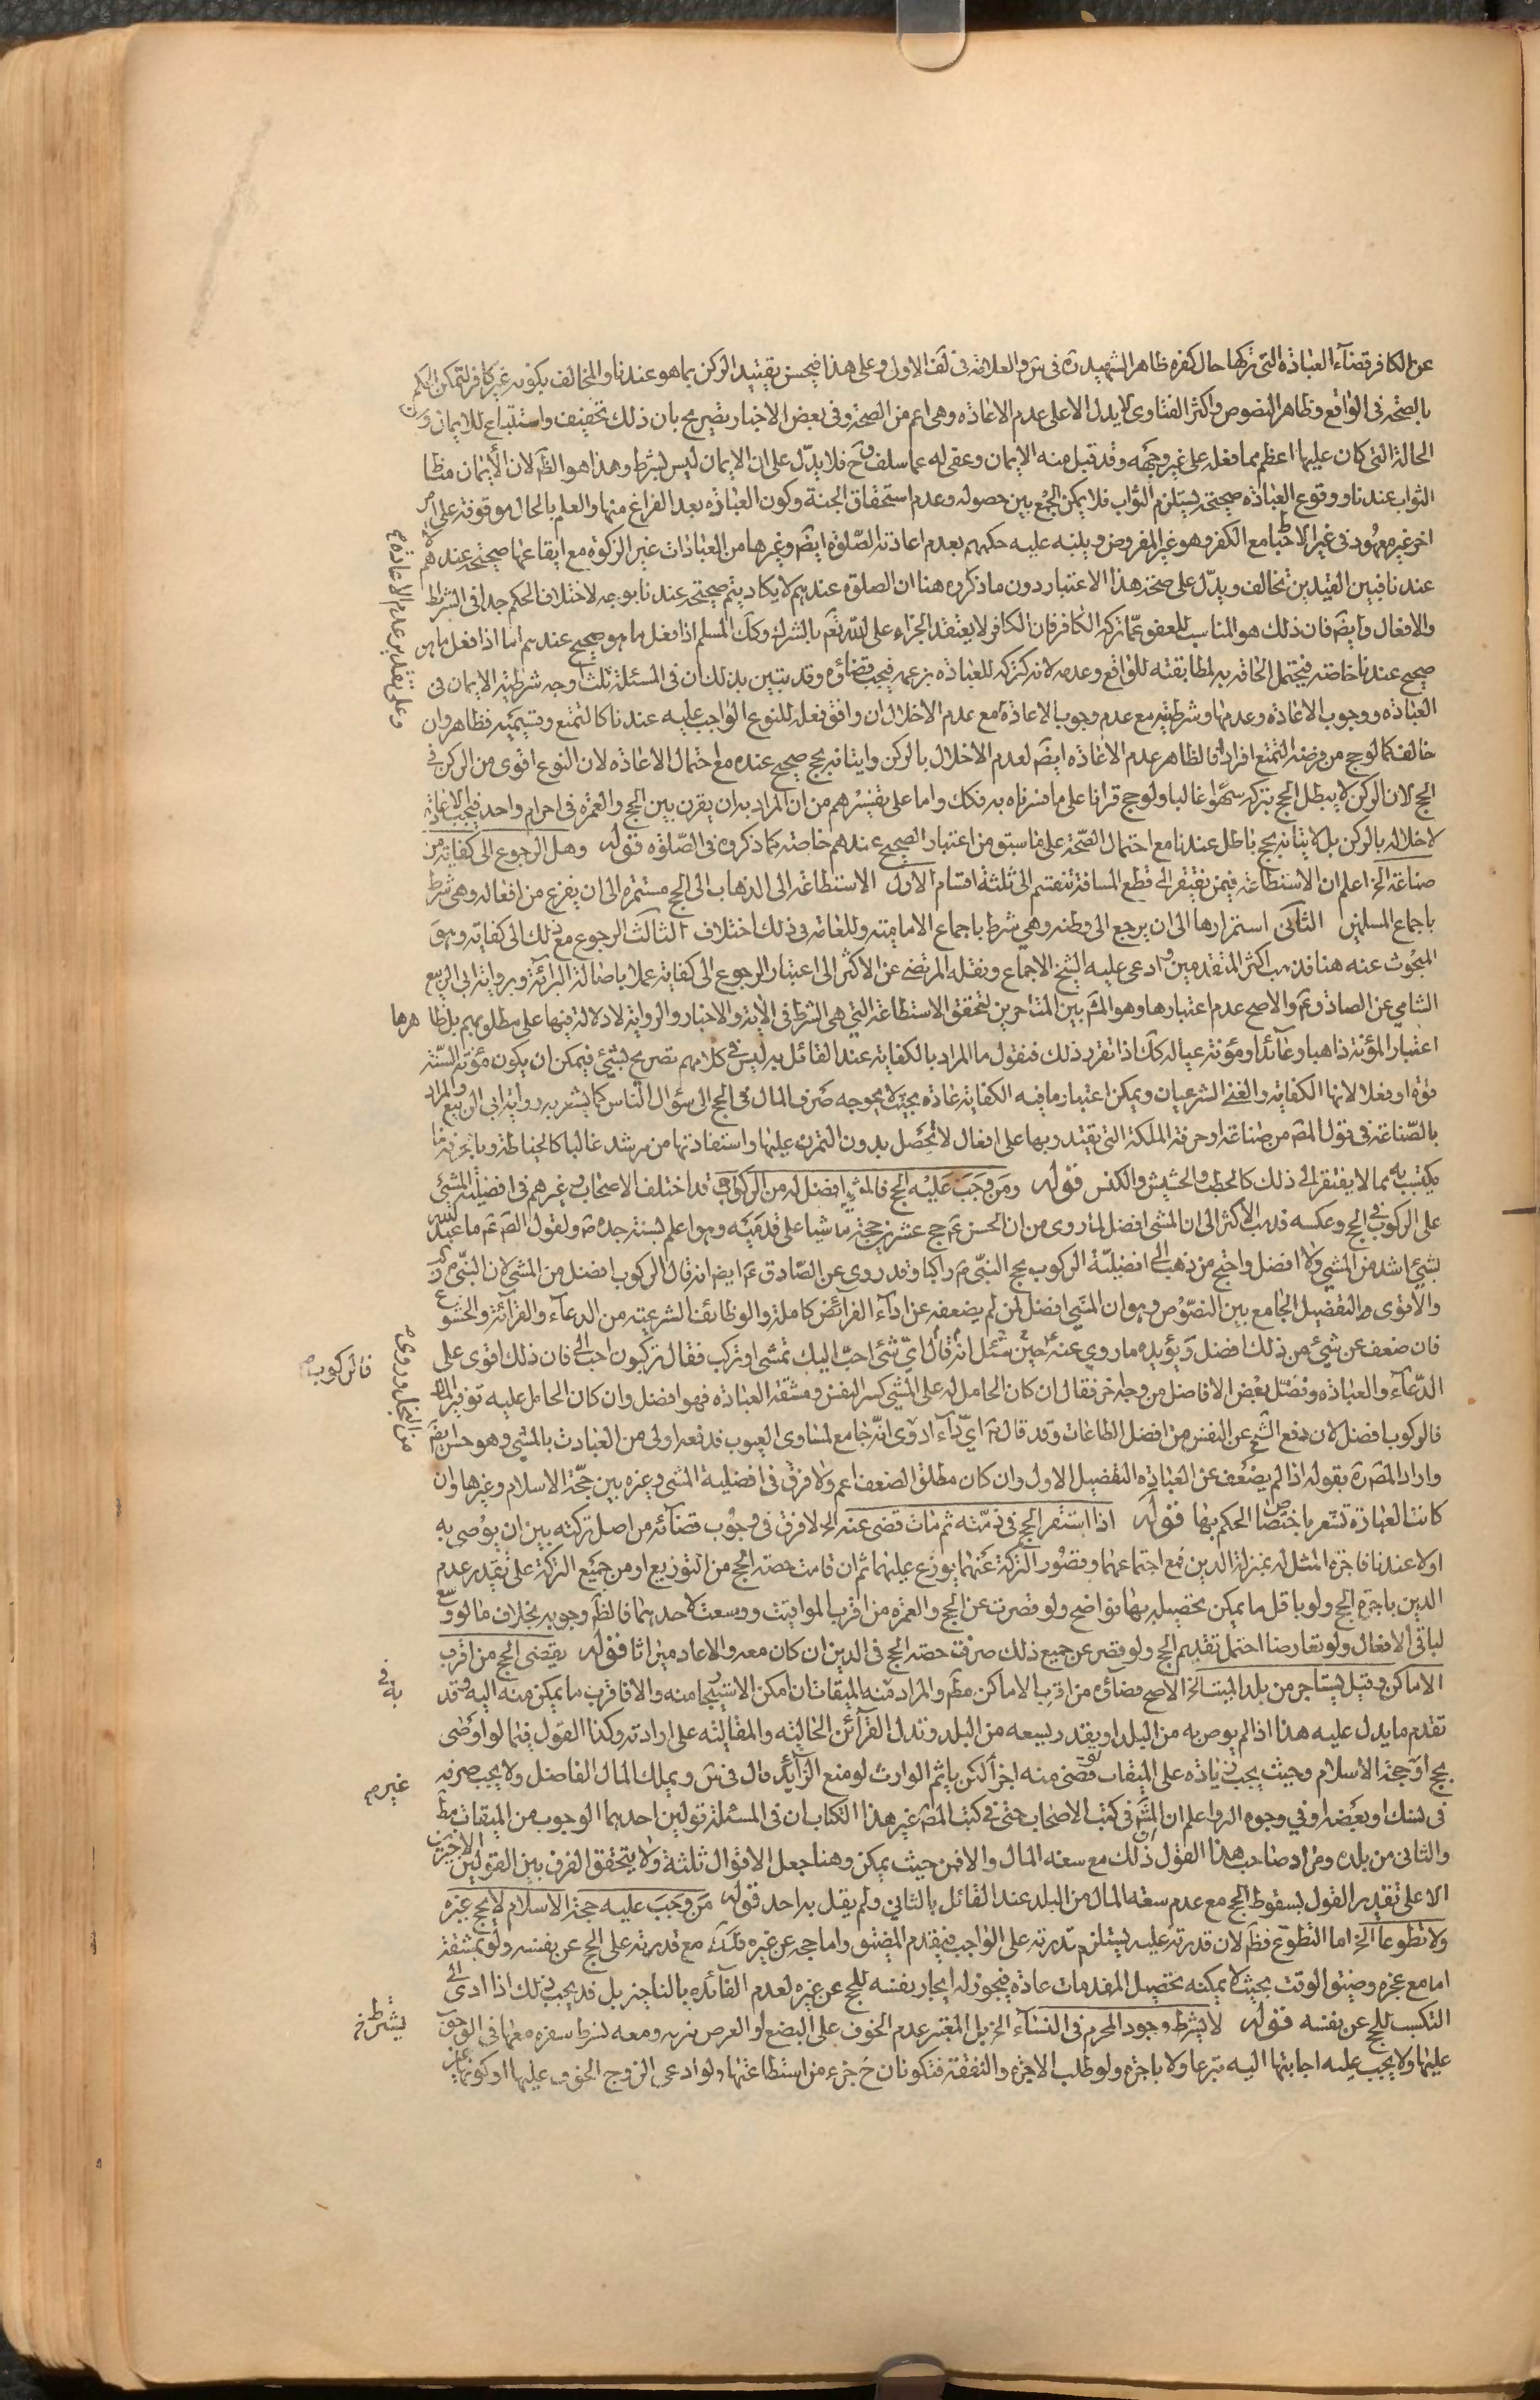 عن الكافر قضاء العبادة التى تركها حال كفره ظاهر الشهيد ره فى س والعلامة فى لف الاول وعلى هذا فيحسن تقييد الركن بما هو عندنا والمخالف بكونه غير كافر لتمكن الحكم
بالصحة فى الواقع وظاهر النصوص واكثر الفتاوى لا يدل الا على عدم الاعاذه وهى اعم من الصحة وفى بعض الاخبار تصريح بان ذلك تخفيف واستتباع للايمان و
الحالة التى كان عليها اعظم مما فعله على غير وجهه وقد قبل منه الايمان وعفى له عما سلف وح فلا يدل على ان الايمان ليس بشرط وهذا هو الظم لان الأيمان مظا
الثواب عندنا ووقوع العباذه صحيحة يستلزم الثواب فلا يمكن الجمع بين حصوله وعدم استحقاق الجنة وكون العباذه بعد الفراغ منها والعلم بالحال موقوفة على امر
اخر غير معهود فى غير الاحباط مع الكفر وهو غير المفروض وينبه عليه حكمهم بعدم اعادته الصلوة ايضم وغيرها من العباذات غير الزكوة مع ايقاعها صحيحة عندهم
عندنا فبين القيدين تخالف ويدل على صحة هذا الاعتبار دون ماذكروه هنا ان الصلوة عندهم لا يكاد يتم صحيحة عندنا بوجه لاختلاف الحكم جدا فى الشرايط
والافعال وايضم فان ذلك هو المناسب للعفو عما تركه الكافر فان الكافر لا يعتقد الجزاء على الله تعم بالشرك وكك المسلم اذا فعل ما هو صحيح عندهم اما اذا فعل ما هو
صحيح عندنا خاصة فيحتمل الحاقه به لمطابقته للواقع وعدمه لانه كتركه للعباذه بزعمه فيجب قضاؤه وقد تبين بذلك ان فى المسئلة ثلث اوجه شرطية الايمان فى
العباذه ووجوب الاعاذه وعدمها وشرطيته مع عدم وجوب الاعاذة مع عدم الاخلال ان وافق فعله للنوع الواجب عليه عندنا كالتمتع وقسيميه فظاهر وان
خالف كما لو حج من فرضه التمتع افرادا فالظاهر عدم الاعاذه ايضم لعدم الاخلال بالركن وايتانه بحج صحيح عنده مع احتمال الاعاذه لان النوع اقوى من الركن فى
الحج لان الركن لا يبطل الحج بتركه سهوا غالبا ولو حج قرانا على ما فسرناه به فكك واما على تفسيرهم من ان المراد به ان يقرن بين الحج والعمرة فى احرام واحد فيجب الاعاذة
لاخلاله بالركن بل لايتانه بحج باطل عندنا مع احتمال الصحة على ما سبق من اعتبار الصحيح عندهم خاصة كما ذكروه فى الصلوه قوله وهل الرجوع الى كفاية من
صناعة الخ اعلم ان الاستطاعة فيمن يفتقر الى قطع المسافة تنقسم الى ثلثة اقسام الاول الاستطاعة الى الذهاب الى الحج مستمره الى ان يفرغ من افعاله وهى شرط
باجماع المسلمين الثانى استمرارها الى ان يرجع الى وطنه وهي شرط باجماع الامامية وللعامة فى ذلك اختلاف الثالث الرجوع مع ذلك الى كفاية وهو
المبحوث عنه هنا فذهب اكثر المتقدمين وادعى عليه الشيخ الاجماع ونقله المرتضى عن الاكثر الى اعتبار الرجوع الى كفاية عملا باصالة البرائة وبرواية ابى الربيع
الشامي عن الصاذق عم والاصح عدم اعتبارها وهو المشم بين المتاخرين لتحقق الاستطاعة التي هى الشرط فى الاية والاخبار والرواية لا دلالة فيها على مطلوبهم بل ظا
اعتبار المؤنة ذاهبا وعائدا ومؤنة عياله كك اذا تقرر ذلك فنقول ما المراد بالكفاية عند القائل به ليس فى كلامهم تصريح بشئ فيمكن ان يكون مؤنة السنة
قوة او فعلا لانها الكفاية والغنى الشرعيان ويمكن اعتبار ما فيه الكفاية عاذه بحيث لا يحوجه صرف المال فى الحج الى سؤال الناس كما يشعر به رواية ابى الربيع والمراد
بالصناعة فى قول المصم من صناعة او حرفة الملكة التى يقتدر بها على افعال لا تحصل بدون التمرن عليها واستفادتها من مرشد غالبا كالخياطة وبالحرفة ما
يكتسب به مما لا يفتقر الى ذلك كالحطب والحشيش والكنس قوله ومن وجب عليه الحج فالمشى افضل له من الركوب قد اختلف الاصحاب وغيرهم فى افضلية المشى
على الركوب فى الحج وعكسه فذهب الاكثر الى ان المشى افضل لما روى من ان الحسن عم حج عشرين حجة ماشيا على قدميه وهو اعلم بسنة جده ص ولقول الصم عم ما عبد الله
بشئ اشد من المشي ولا افضل واحتج من ذهب الى افضلية الركوب بحج النبى ص راكبا وقد روى عن الصادق عم ايضا انه قال الركوب افضل من المشى لان النبى ص ركب
والاقوى التفضيل الجامع بين النصوص وهو ان المشى افضل لمن لم يضعفه عن اداء الفرائض كاملة والوظائف الشرعية من الدعاء والقرآئة والخشوع
فان ضعف عن شئ من ذلك افضل ويؤيده ما روي عنه عم حين سئل انه قال اي شئ احب اليك نمشى او نركب فقال تركبون احب الى فان ذلك اقوى على
الدعاء والعباذه وفصل بعض الافاضل من وجه اخر فقال ان كان الحامل له على المشي كسر النفس ومشقة العباذه فهو افضل وان كان الحامل عليه توفير المال
فالركوب افضل لان دفع الشح عن النفس من افضل الطاعات وقد قال ص اي داء ادوى انه جامع لمساوى العيوب فدفعه اولى من العبادة بالمشى وهو حسن ايضم
واراد المصم ره بقوله اذا لم يضعف عن العباذه التفضيل الاول وان كان مطلق الضعف اعم ولا فرق فى افضلية المشى وغيره بين حجة الاسلام وغيرها وان
كانت العبارة تشعر باختصاص الحكم بها قوله اذا استقر الحج فى ذمته ثم مات قضى عنه الخ لا فرق فى وجوب قضائه من اصل تركته بين ان يوصى به
اولا عندنا فاجرة المثل له بمنزلة الدين فمع اجتماعهما وقصور التركة عنهما يوزع عليهما ثم ان قامت حصة الحج من التوزيع او من جميع التركة على تقدير عدم
الدين باجرة الحج ولو باقل ما يمكن تحصيله بها فواضح ولو قصرت عن الحج والعمره من اقرب المواقيت ووسعت لاحدهما فالظم وجوبه بخلاف ما لو وسع
لباقى الافعال ولو تعارضا احتمل تقديم الحج ولو قصر عن جميع ذلك صرفت حصة الحج فى الدين ان كان معه والا عاد ميراثا قوله يقضى الحج من اقرب
الاماكن وقيل يستاجر من بلد الميت الخ الاصح قضاؤه من اقرب الاماكن مطم والمراد منه الميقات ان امكن الاستيجار منه والا فاقرب ما يمكن منه اليه وقد
تقدم ما يدل عليه هذا اذا لم يوص به من البلد او يقدر بسعة من البلد وتدل القرآئن الحالية والمقالية على ارادته وكذا القول فيما لو اوصى
بحج او حجة الاسلام وحيث يجب زياذه على الميقات لو قضى منه اجزا لكن ياثم الوارث لو منع الزايد قال فى س ويملك المال الفاضل ولا يجب صرفه
فى نسك او بعضه او في وجوه البر واعلم ان المشم فى كتب الاصحاب حتى فى كتب المصم غير هذا الكتاب ان فى المسئلة قولين احدهما الوجوب من الميقات مطم
والثانى من بلده ومراد صاحب هذا القول ذلك مع سعة المال والا فمن حيث يمكن وهنا جعل الاقوال ثلثة ولا يتحقق الفرق بين القولين الاخيرين
الا على تقدير القول بسقوط الحج مع عدم سعة المال من البلد عند القائل بالثانى ولم يقل به احد قوله من وجب عليه حجة الاسلام لا يحج غيره
ولا تطوعا الخ اما التطوع فظم لان قدرته عليه يستلزم قدرته على الواجب فيقدم المضيق واما حجه عن غيره فكك مع قدرته على الحج عن نفسه ولو بمشقة
اما مع عجزه وضيق الوقت بحيث لا يمكنه تحصيل المقدمات عاذه فيجوز له ايجار نفسه للحج عن غيره لعدم الفآئده بالتاخير بل قد يجب ذلك اذا ادى الى
التكسب للحج عن نفسه قوله لا يشرط وجود المحرم فى النسآء الخ بل المعتبر عدم الخوف على البضع او العرض بتركه ومعه يشرط سفره معها فى الوجوب
عليها ولا يجب عليه اجابتها اليه تبرعا ولا باجره ولو طلب الاجرة والنفقة فتكونان ح جزء من استطاعتها ولو ادعى الزوج الخوف عليها او كونها
وعلى تقدير عدم الاعاذة
هرها
فالركوب
من البخل وروى
به فى
غير
يشترط